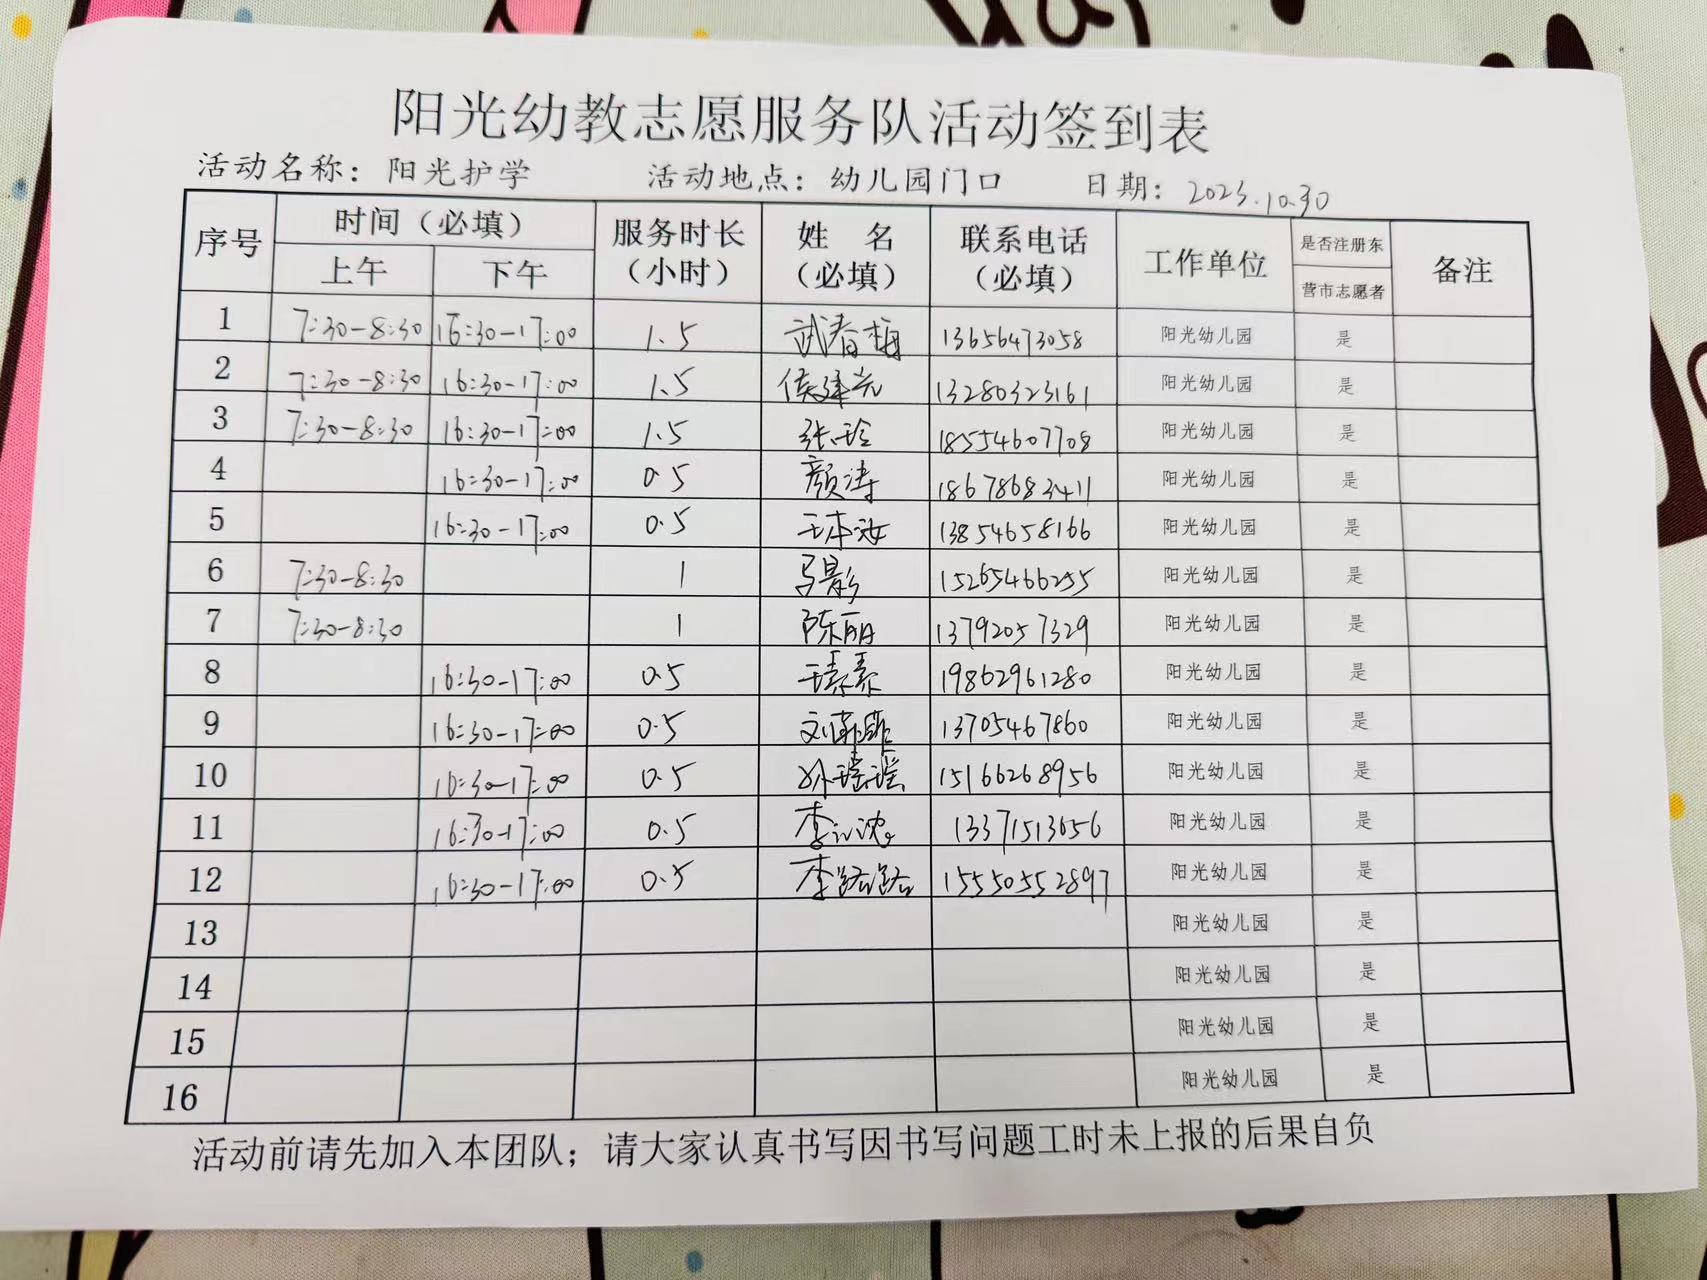 阳光幼教志愿服务队活动签到表
活动名称：阳光护学 活动地点：幼儿园门口 日期：2023.10.30
序号 时间（必填） 服务时长（小时） 姓 名（必填） 联系电话（必填） 工作单位 是否注册东营市志愿者 备注
上午 下午
1 7:30-8:30 16:30-17:00 1.5 武春梅 13656473058 阳光幼儿园 是
2 7:30-8:30 16:30-17:00 1.5 侯建光 13280323161 阳光幼儿园 是
3 7:30-8:30 16:30-17:00 1.5 张玲 18554607708 阳光幼儿园 是
4 16:30-17:00 0.5 颜涛 18678683411 阳光幼儿园 是
5 16:30-17:00 0.5 13854658166 阳光幼儿园 是
6 7:30-8:30 1 马影 15265466255 阳光幼儿园 是
7 7:30-8:30 1 陈丽 13792057329 阳光幼儿园 是
8 16:30-17:00 0.5 19862961280 阳光幼儿园 是
9 16:30-17:00 0.5 刘菲菲 13705467860 阳光幼儿园 是
10 16:30-17:00 0.5 孙瑶瑶 15166268956 阳光幼儿园 是
11 16:30-17:00 0.5 13371513656 阳光幼儿园 是
12 16:30-17:00 0.5 李路路 15550552897 阳光幼儿园 是
13 阳光幼儿园 是
14 阳光幼儿园 是
15 阳光幼儿园 是
16 阳光幼儿园 是
活动前请先加入本团队；请大家认真书写因书写问题工时未上报的后果自负